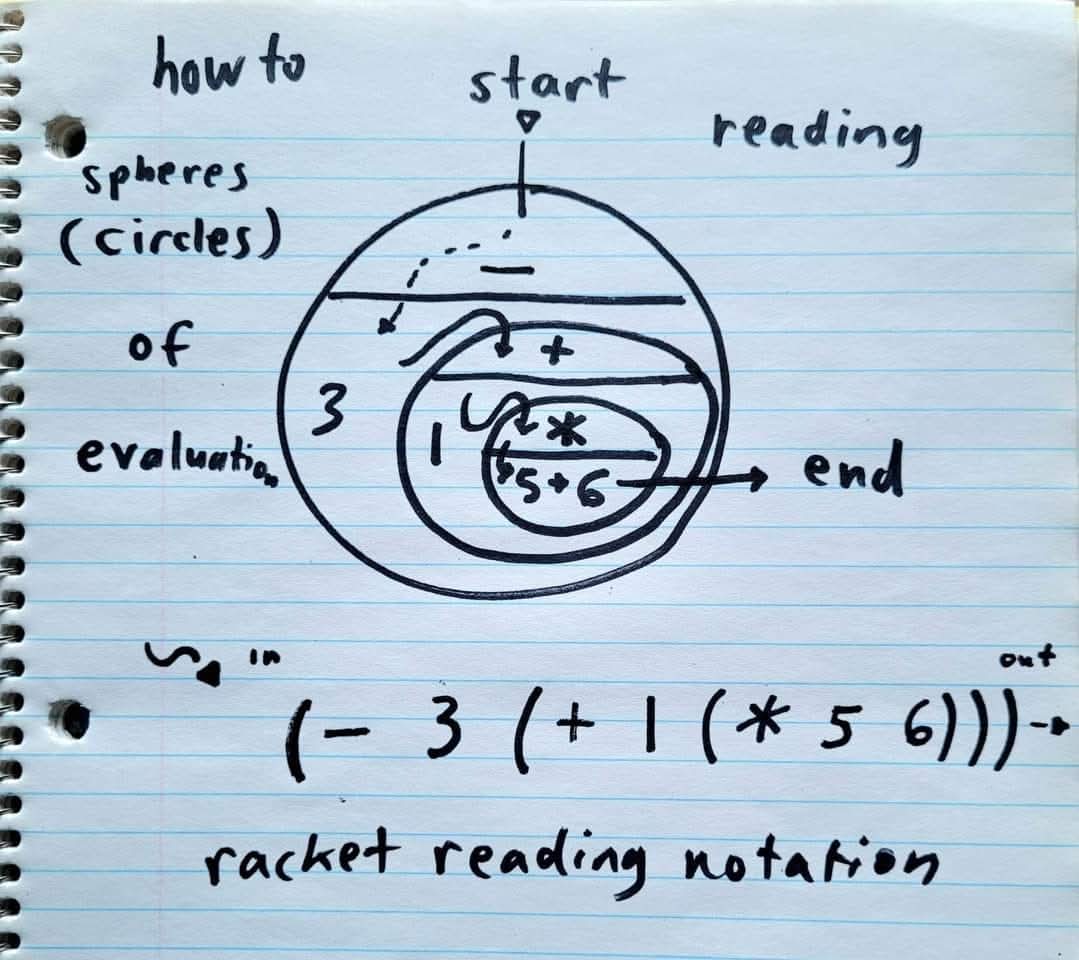 how to
start
reading
spheres
(circles)
of
evaluation
−
+
3
1
*
5 6
end
in
out
(− 3 (+ 1 (* 5 6)))
racket reading notation